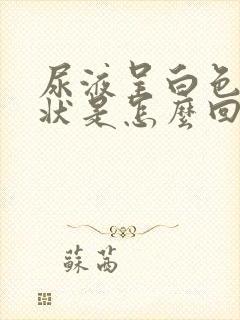 尿液呈白色
状是怎麼回
蘇茜